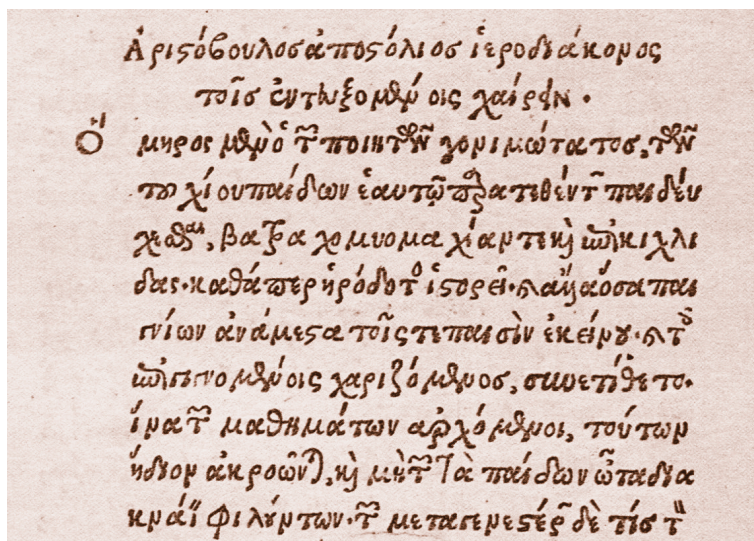 Ἀριστόβουλος ἀποστόλιος ἱεροδιάκονος
τοῖς ἐντευξομένοις χαίρειν.
Ὅμηρος μὲν ὁ τῶν ποιητῶν γονιμώτατος, τῶν
του χίου παίδων ἑαυτῷ παρατεθέντων παιδεύ
εσθαι, βατραχομυομαχίαν τε καὶ ἐπικιχλί
δας. καθάπερ ἡρόδοτος ἱστορεῖ. καὶ ἄλλα ὅσα παι
γνίων ἀνάμεστα τοῖς τε παισὶν ἐκείνου. καὶ τοῖς
ἐπιγινομένοις χαριζόμενος, συνετίθετο.
ἵνα τῶν μαθημάτων ἀρχόμενοι, τούτων
ἥδιον ἀκροῶνται, καὶ μὴ τῶν τὰ παίδων ὦτα δια
κναίειν φιλούντων. τῶν μεταγενεστέρων δὲ τίς